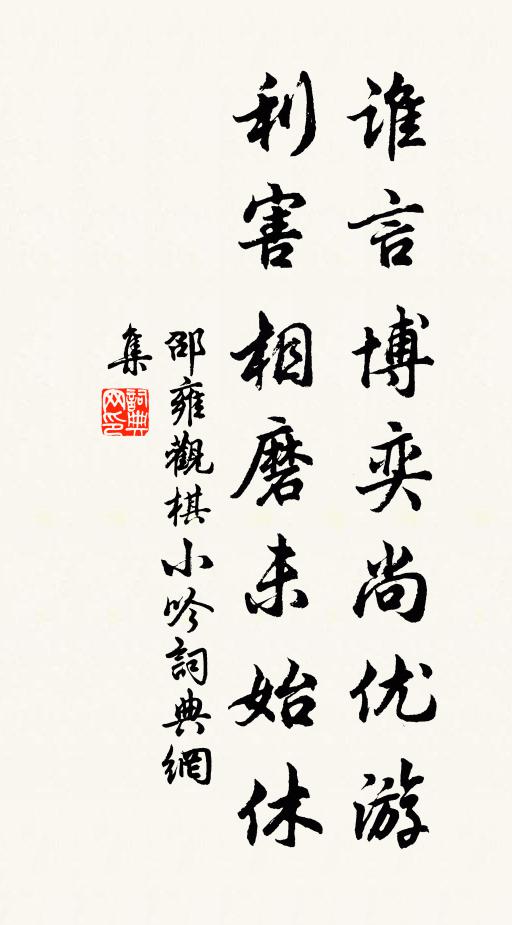 谁言博奕尚优游
利害相磨未始休
邵雍觀棋小吟詞典網
集
詞典
网印